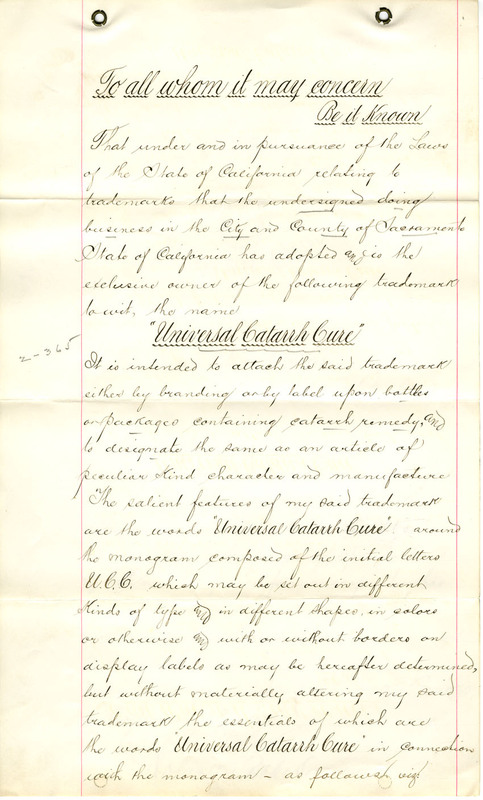 To all whom it may concern
Be it Known
That under and in pursuance of the Laws
of the State of California relating to
trademarks that the undersigned doing
business in the City and County of Sacramento
State of California has adopted and is the
exclusive owner of the following trademark
to wit, the name
"Universal Catarrh Cure"
2-365
It is intended to attach the said trademark
either by branding or by label upon bottles
or packages containing catarrh remedy, and
to designate the same as an article of
peculiar kind character and manufacture
The salient features of my said trademark
are the words "Universal Catarrh Cure" around
the monogram composed of the initial letters
U.C.C. which may be set out in different
kinds of type and in different shapes, in colors
or otherwise and with or without borders on
display labels as may be hereafter determined,
but without materially altering my said
trademark the essentials of which are
the words "Universal Catarrh Cure" in connection
with the monogram - as follows, viz